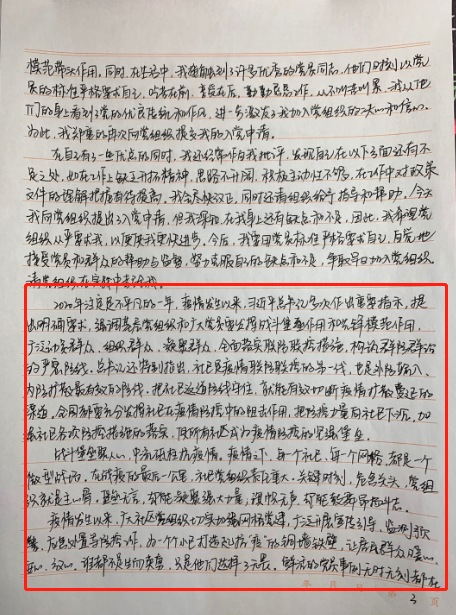 模范带头作用。同时,在生活中,我接触到了许多优秀的党员同志,他们时刻以党
员的标准严格要求自己,吃苦在前,享受在后,勤勤恳恳工作,从不叫苦叫累,我从他
们的身上看到了党的优良传统和作风,进一步激发了我加入党组织的决心和信心。
为此,我郑重的再次向党组织提交我的入党申请。
在自己有一些优点的同时,我还经常作自我批评,发现自己在以下方面还有不
足之处,如在工作上缺乏开拓精神,思路不开阔,积极主动性不够,在工作中对政策
文件的理解把握有待提高,我会尽快改正,同时还请组织给予指导和帮助。今天
我向党组织提出了入党申请,但我深知,在我身上还有缺点和不足,因此,我希望党
组织从严要求我,以便使我更快进步。今后,我要用党员标准严格要求自己,自觉地
接受党员和群众的帮助与监督,努力克服自己的缺点和不足,争取早日加入党组织
请党组织在实践中考验我。
2020年注定是不平凡的一年,疫情发生以来,习近平总书记多次作出重要指示,提
出明确要求,强调基层党组织和广大党员要发挥战斗堡垒作用和先锋模范作用,
广泛动员群众、组织群众、凝聚群众,全面落实联防联控措施,构筑群防群治
的严密防线。总书记还特别指出,社区是疫情联防联控的第一线,也是外防输入、
内防扩散最有效的防线。把社区这道防线守住,就能有效切断疫情扩散蔓延的
渠道。全国都要充分发挥社区在疫情防控中的阻击作用,把防控力量向社区下沉,加
强社区各项防控措施的落实,使所有社区成为疫情防控的坚强堡垒。
战斗堡垒聚人心,中流砥柱抗疫情。疫情之下,每个社区、每个网格,都是一个
微型战场。在战疫的最后一公里,社区党组织责任重大。关键时刻、危急关头,党组
织就是主心骨,
疫情发生以来,广大社区党组织切实加强网格党建,广泛开展宣传引导、监测预
警、应急处置等防控工作,为一个个小区打造起抗"疫"的铜墙铁壁,让居民群众暖心、
谁都不是生而英勇,只是他们选择了无畏。鲜活的党员事例无时无刻都在
3